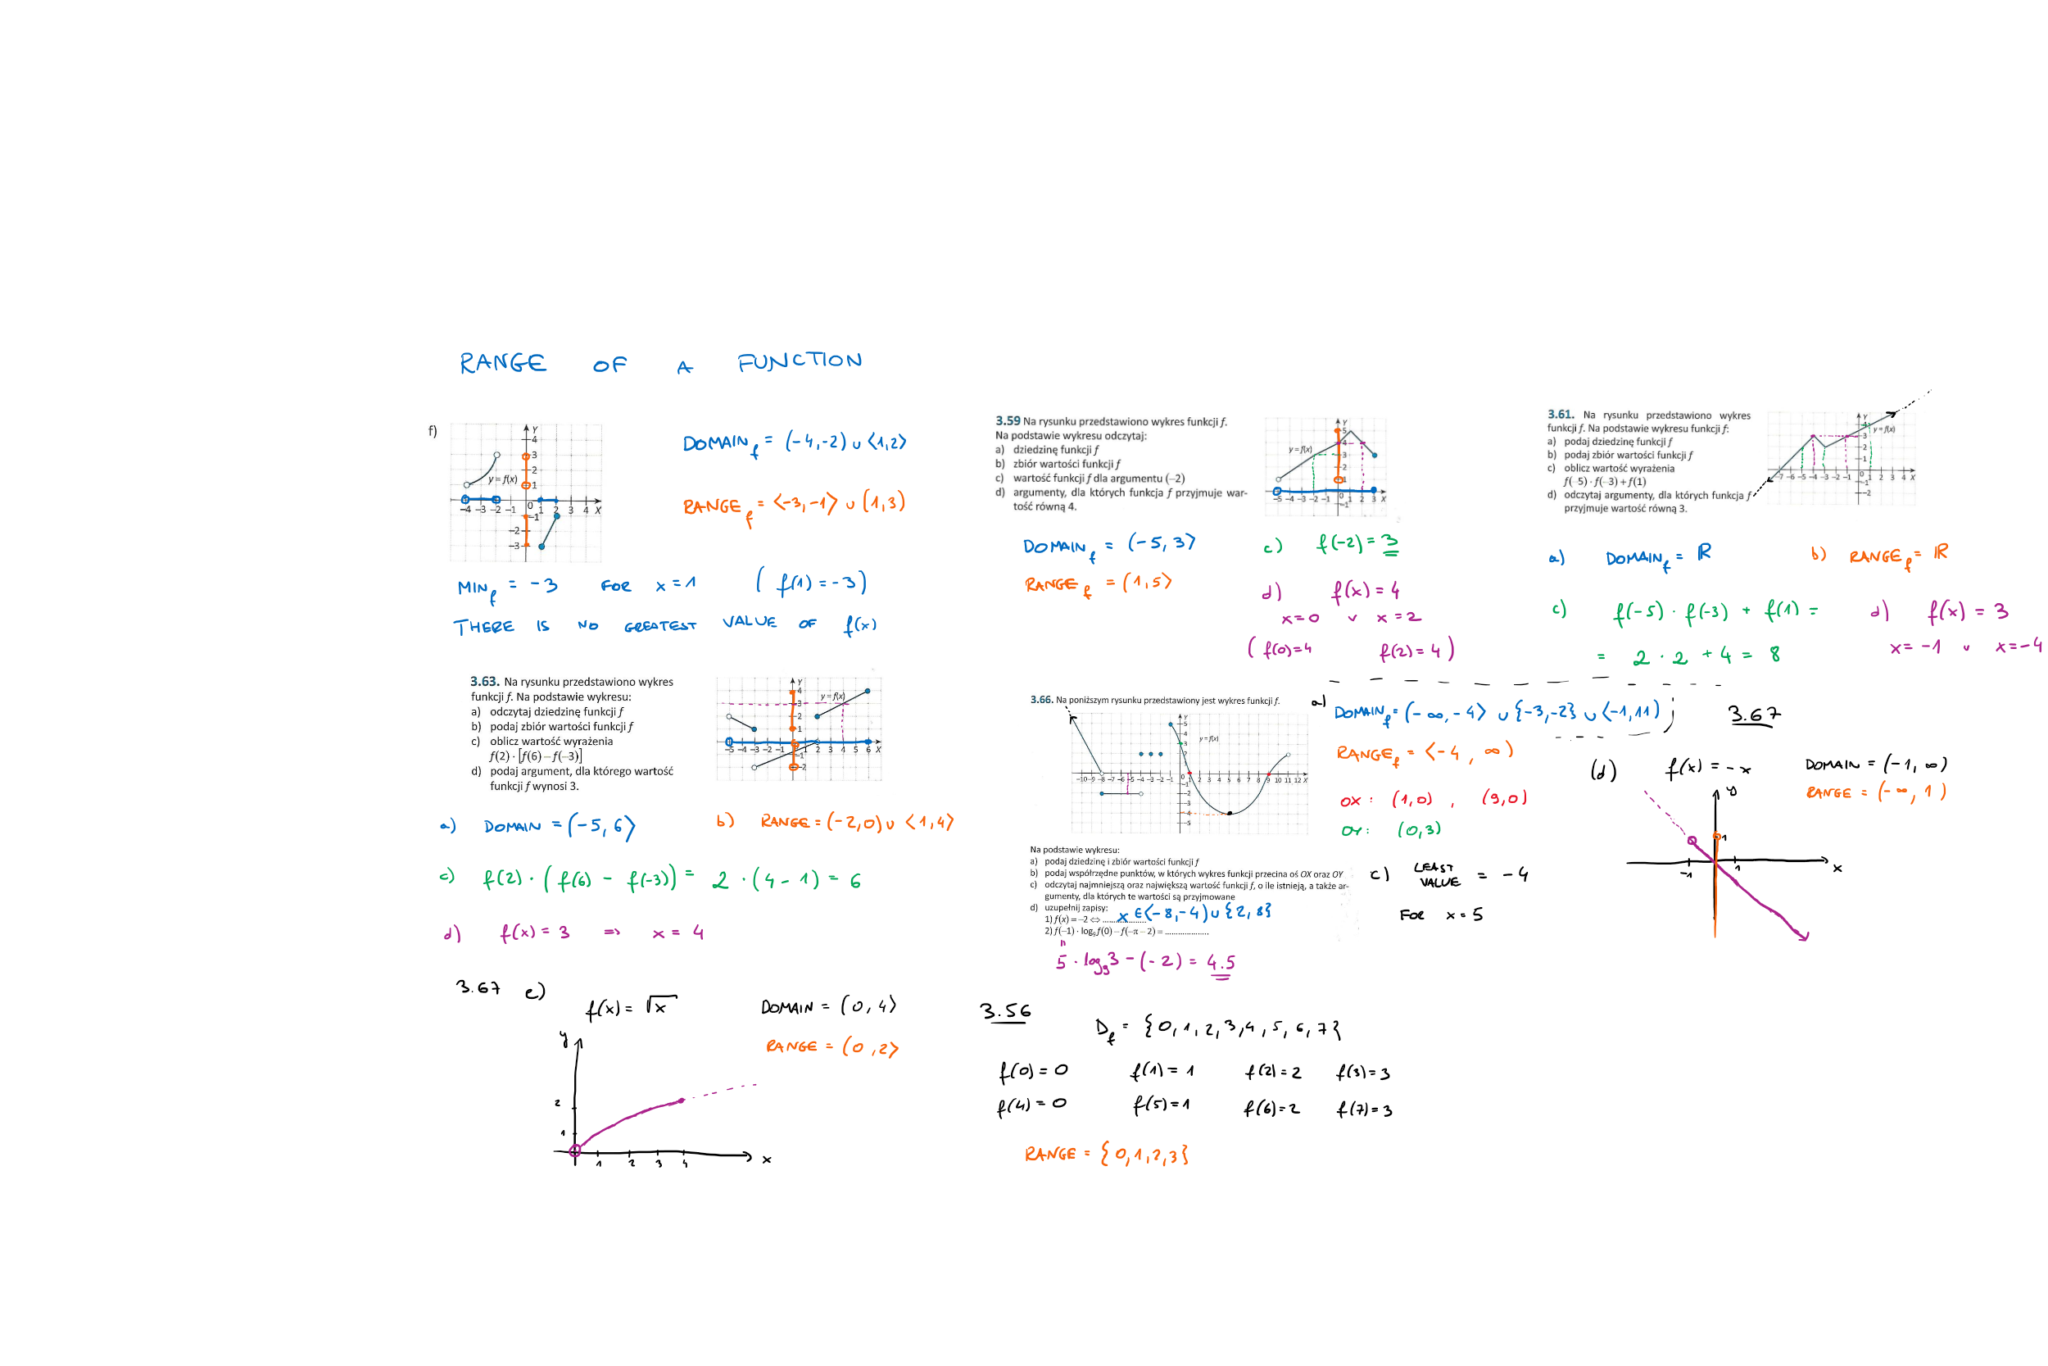 RANGE OF A FUNCTION
f)
y = f(x)
DOMAIN_f = (-4,-2) ∪ <1,2>
RANGE_f = <-3,-1> ∪ (1,3)
MIN_f = -3 FOR x=1 ( f(1) = -3 )
THERE IS NO GREATEST VALUE OF f(x)
3.59 Na rysunku przedstawiono wykres funkcji f.
Na podstawie wykresu odczytaj:
a) dziedzinę funkcji f
b) zbiór wartości funkcji f
c) wartość funkcji f dla argumentu (–2)
d) argumenty, dla których funkcja f przyjmuje war-
tość równą 4.
y = f(x)
DOMAIN_f = (-5, 3>
RANGE_f = (1,5>
c) f(-2) = 3
d) f(x) = 4
x=0 ∨ x=2
( f(0)=4 f(2)=4 )
3.61. Na rysunku przedstawiono wykres
funkcji f. Na podstawie wykresu funkcji f:
a) podaj dziedzinę funkcji f
b) podaj zbiór wartości funkcji f
c) oblicz wartość wyrażenia
f(-5) · f(-3) + f(1)
d) odczytaj argumenty, dla których funkcja f
przyjmuje wartość równą 3.
y = f(x)
a) DOMAIN_f = ℝ
b) RANGE_f = ℝ
c) f(-5) · f(-3) + f(1) =
= 2 · 2 + 4 = 8
d) f(x) = 3
x= -1 ∨ x=-4
3.63. Na rysunku przedstawiono wykres
funkcji f. Na podstawie wykresu:
a) odczytaj dziedzinę funkcji f
b) podaj zbiór wartości funkcji f
c) oblicz wartość wyrażenia
f(2) · [f(6) – f(–3)]
d) podaj argument, dla którego wartość
funkcji f wynosi 3.
y = f(x)
a) DOMAIN = (-5, 6>
b) RANGE = (-2,0) ∪ <1,4>
c) f(2) · ( f(6) - f(-3)) = 2 · (4 - 1) = 6
d) f(x) = 3 => x = 4
3.66. Na poniższym rysunku przedstawiony jest wykres funkcji f.
y = f(x)
Na podstawie wykresu:
a) podaj dziedzinę i zbiór wartości funkcji f
b) podaj współrzędne punktów, w których wykres funkcji przecina oś OX oraz OY
c) odczytaj najmniejszą oraz największą wartość funkcji f, o ile istnieją, a także ar-
gumenty, dla których te wartości są przyjmowane
d) uzupełnij zapisy:
1) f(x) = –2 ⇔ .......... x ∈ <-8,-4) ∪ {2, 8}
2) f(–1) · log₉f(0) – f(–π – 2) = ....................
5 · log₉3 - (-2) = 4.5
a) DOMAIN_f = (-∞, -4> ∪ {-3,-2} ∪ <-1,11)
RANGE_f = <-4, ∞)
OX : (1,0) , (9,0)
OY : (0,3)
c) LEAST VALUE = -4
FOR x=5
3.67
(d) f(x) = -x
DOMAIN = (-1, ∞)
RANGE = (-∞, 1)
y
1
-1 1 x
3.67 e) f(x) = √x
DOMAIN = (0, 4>
RANGE = (0, 2>
y
2
1
1 2 3 4 x
3.56
D_f = {0,1,2,3,4,5,6,7}
f(0) = 0 f(1) = 1 f(2) = 2 f(3) = 3
f(4) = 0 f(5) = 1 f(6) = 2 f(7) = 3
RANGE = {0,1,2,3}